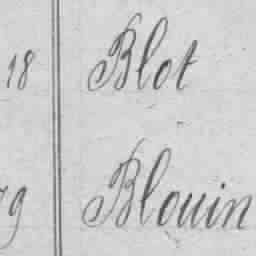 18 Blot
79 Blouin